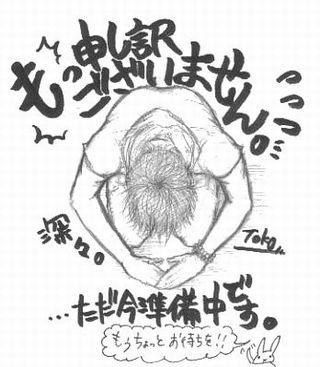 もっ申し訳
ございません。
深々。
Toko
…ただ今準備中です。
もうちょっとお待ちを!!